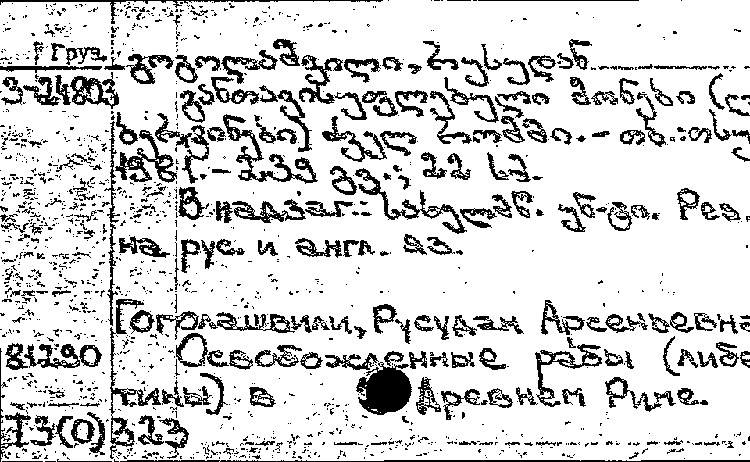 Груз.
გოგოლაშვილი, რუსუდან
3-24803 განთავისუფლებული მონები (ლ
ბერტინები) ძველ რომში. - თბ.: თსუ
1981. - 239 გვ.; 22 სმ.
В надзаг.: სახელმწ. უნ-ტი. Рез.
на рус. и англ. яз.
Гоголашвили, Русудан Арсеньевна
81290 Освобожденные рабы (либе
тины) в Древнем Риме.
Т3(0)323